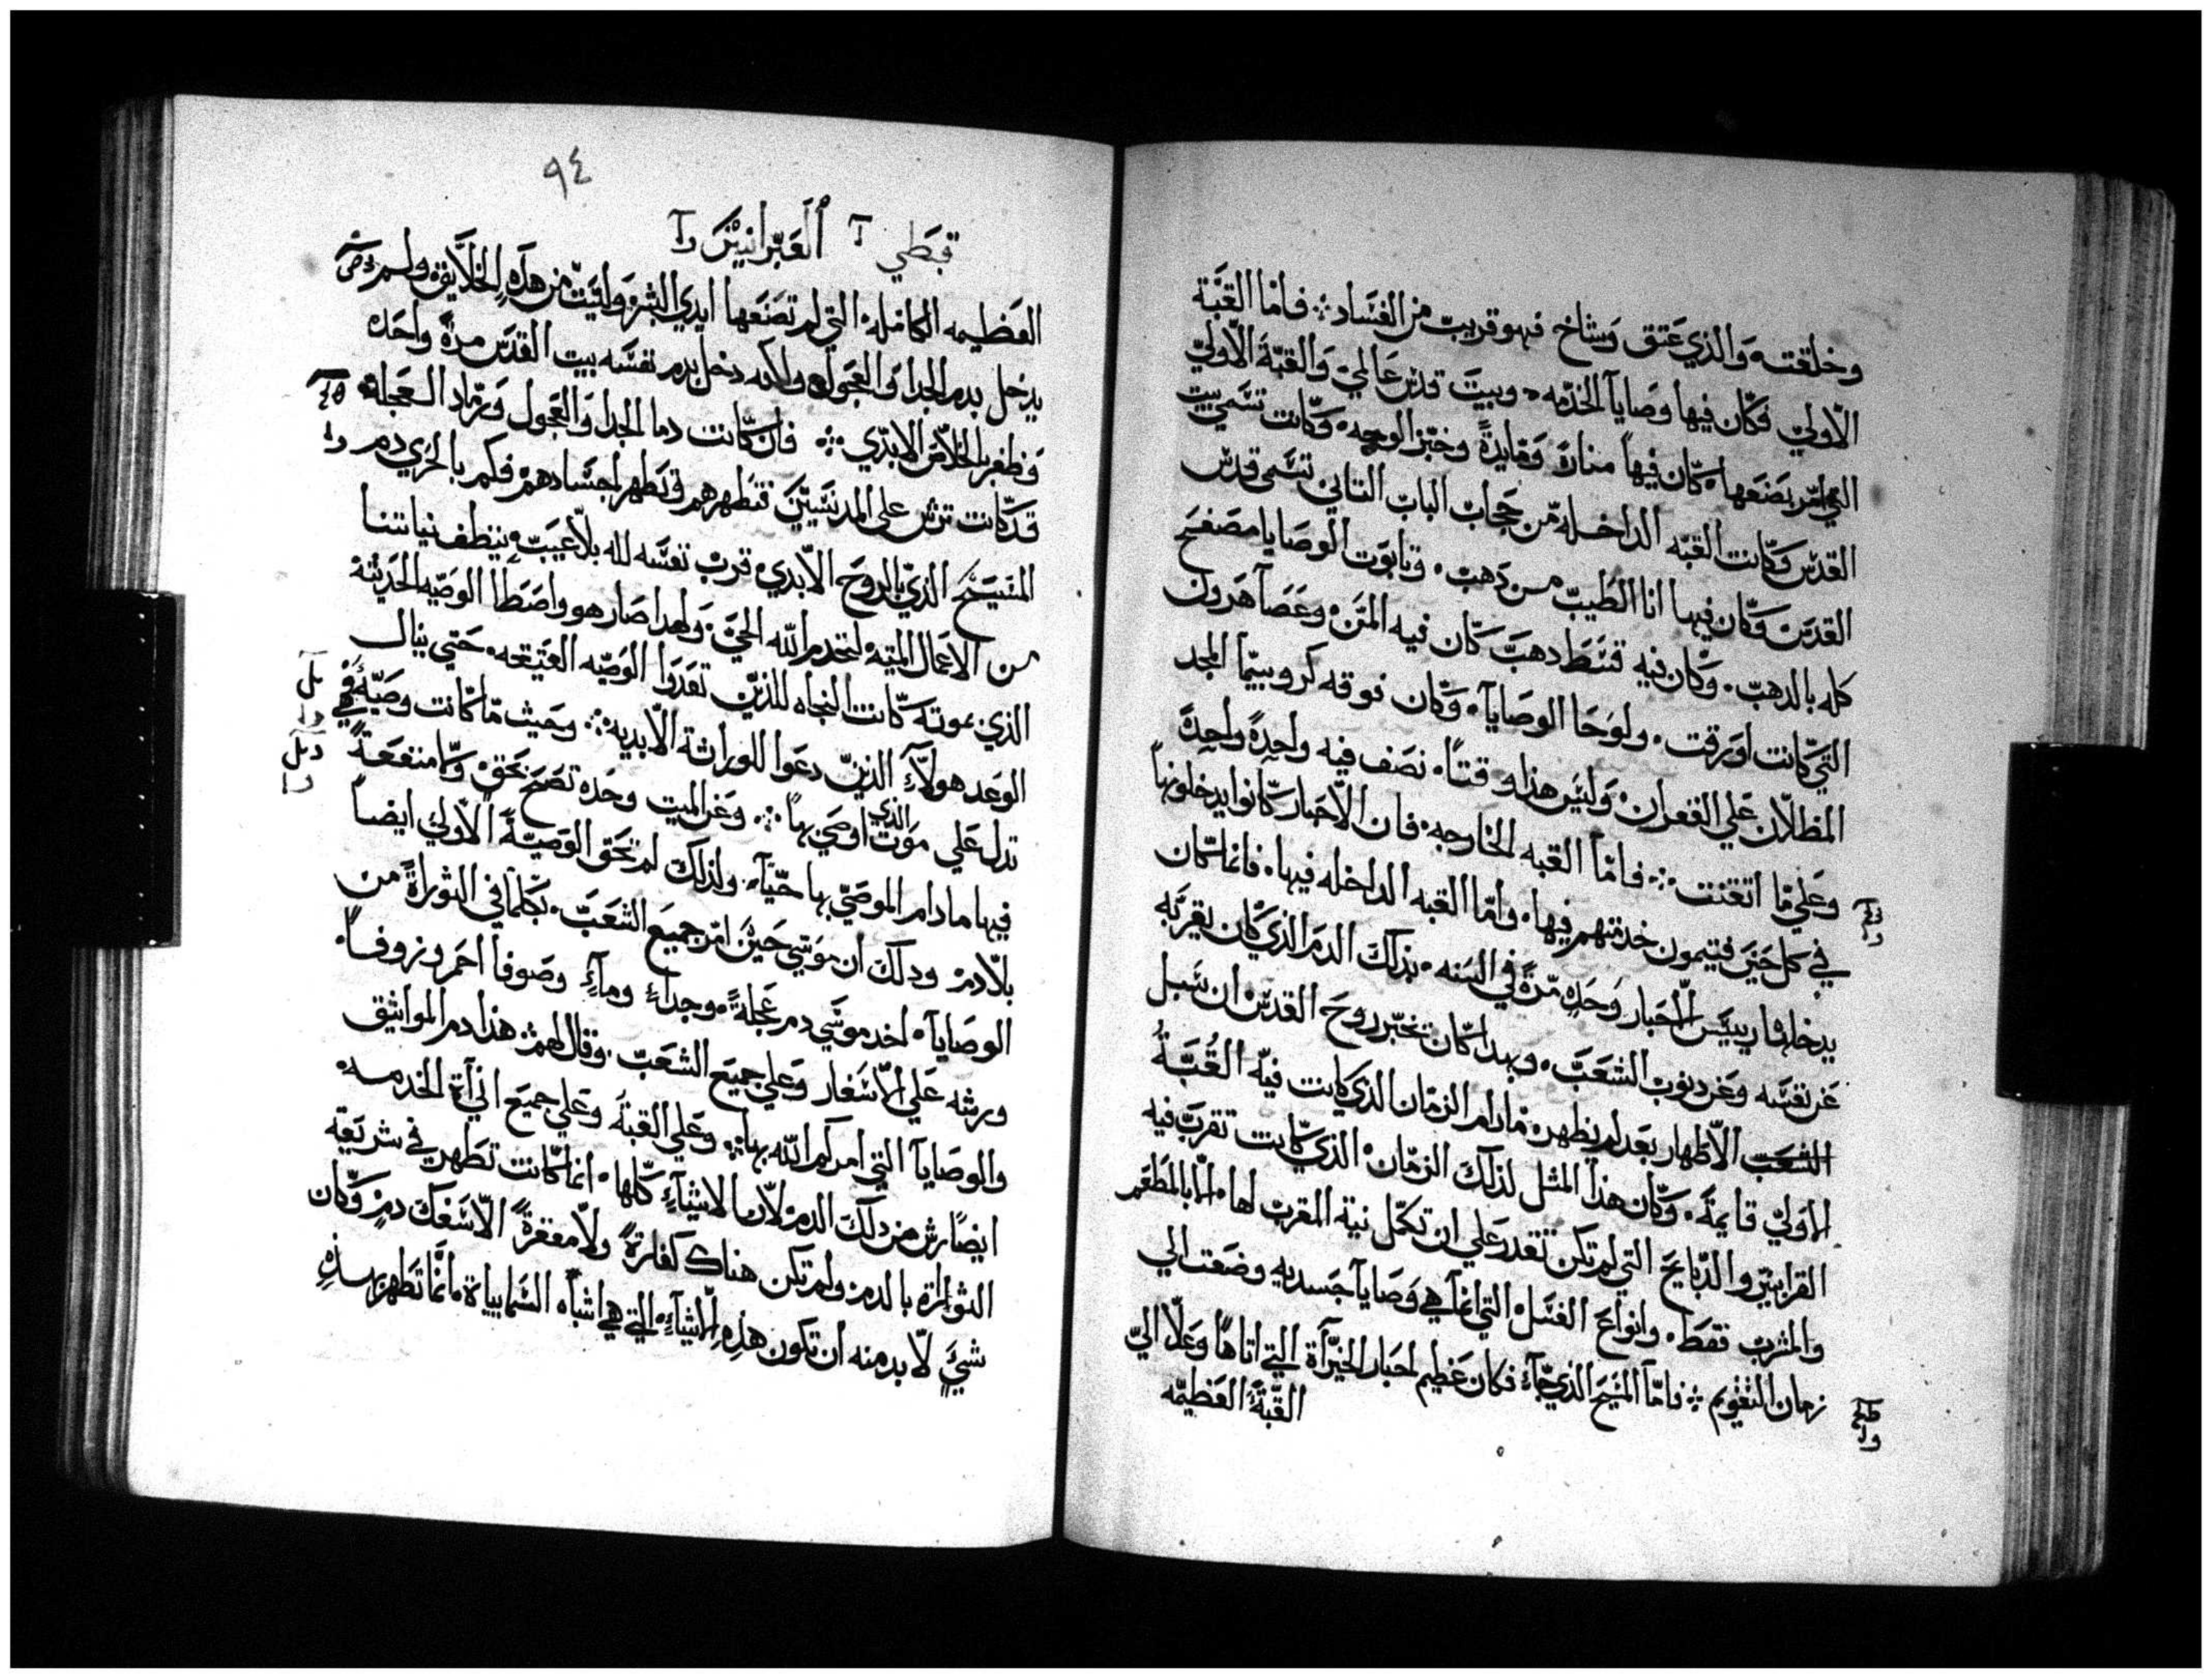 وخلقته والذي عتق وشاخ فهو قريب من الفساد فاما القبة
الاولي فكان فيها وصايا الخدمه وبيت قدس عالمي والقبة الاولي
التي امر بصنعها كان فيها منارة ومايدة وخبز الوجه وكانت تسمي بيت
القدس وكانت القبه الداخله من حجاب الباب التاني تسمي قدس
القدس وكان فيها انا الطيب من دهب وتابوت الوصايا مصفح
كله بالدهب وكان فيه قسط دهب كان فيه المن وعصا هرون
التي كانت اورقت ولوحا الوصايا وكان فوقه كروبيما المجد
المظلان علي الغفران وليس هذا وقتا نصف فيه واحدة واحدة
وعلي ما اتقنت فاما القبه الخارجه فان الاحبار كانوا يدخلونها
في كل حين فيتمون خدمتهم فيها واما القبه الداخله فيها فانما كان
يدخلها رييس الاحبار وحده مرة في السنه بذلك الدم الذي كان يقربه
عن نفسه وعن دنوب الشعب وبهدا كان تخبر روح القدس ان سبل
الشعب الاظهار بعد لم تظهر مادام الزمان الذي كانت فيه القبة
الاولي قايمة وكان هذا المثل لذلك الزمان الذي كانت تقرب فيه
القرابين والدبايح التي لم تكن تقدر علي ان تكمل نية المقرب لها الا بالمطعم
والمشرب فقط وانواع الغسل التي انما هي وصايا جسديه وضعت الي
زمان التقويم فاما المسيح الذي جاء فكان عظيم احبار الخيراة التي اتاها وعلا الي
القبة العظيمه
٩٤
قبطي ا العبرانيين را
العظيمه الكامله التي لم تصنعها ايدي البشر وليت من هذه الخلايقه ولم
يدخل بدم الجدا والعجول ولكنه دخل بدم نفسه بيت القدس مرة واحده
وظفر بالخلاص الابدي فان كانت دما الجدا والعجول ورماد العجلة
قد كانت ترش علي المدنسين فتطهرهم وتطهر اجسادهم فكم بالحري دم
المسيح الذي بالروح الابدي قرب نفسه لله بلا عيب ينظف نياتنا
من الاعمال الميته لنخدم الله الحي ولهدا صار هو واصطا الوصيه الحديثة
الذي بموته كانت النجاه للذين تعدوا الوصيه العتيقه حتي ينال
الوعد هولاء الذين دعوا للوراثة الابديه وحيث ما كانت وصية فهي
تدل علي موت الذي اوصي بها وعن الميت وحده تصح تحق وما منفعة
فيها مادام الموصي بها حيا ولذلك لم تحق الوصية الاولي ايضا
بلا دم ودلك ان موسي حين امر جميع الشعب بكلما في التوراة من
الوصايا اخد موسي دم عجلة وجداء وماء وصوفا احمر وزوفا
ورشه علي الاسفار وعلي جميع الشعب وقال لهم هذا دم المواثيق
والوصايا التي امركم الله بها وعلي القبة وعلي جميع اناة الخدمه
ايضا رش من دلك الدم لان الاشياء كلها انما كانت تطهر في شريعة
التوراة بالدم ولم تكن هناك كفارة ولا مغفرة الا بسفك دم وكان
شي لا بد منه ان تكون هذه الاشياء التي هي اشباه السماييات انما تطهر بهذه